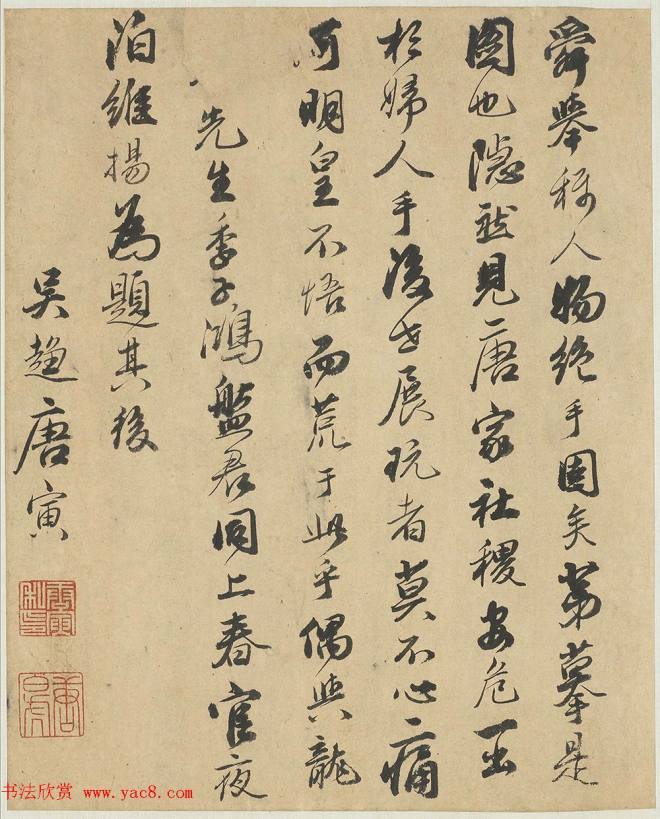 舜舉称人物絶手固矣苐摹是
圖也隠然見唐家社稷安危至
於婦人手後世展玩者莫不心痛
可明皇不悟而荒于此乎偶與龍
先生季子鴻盤君同上春官夜
泊維揚為題其後
吴趨唐寅
唐白虎
书法欣赏 www.yac8.com